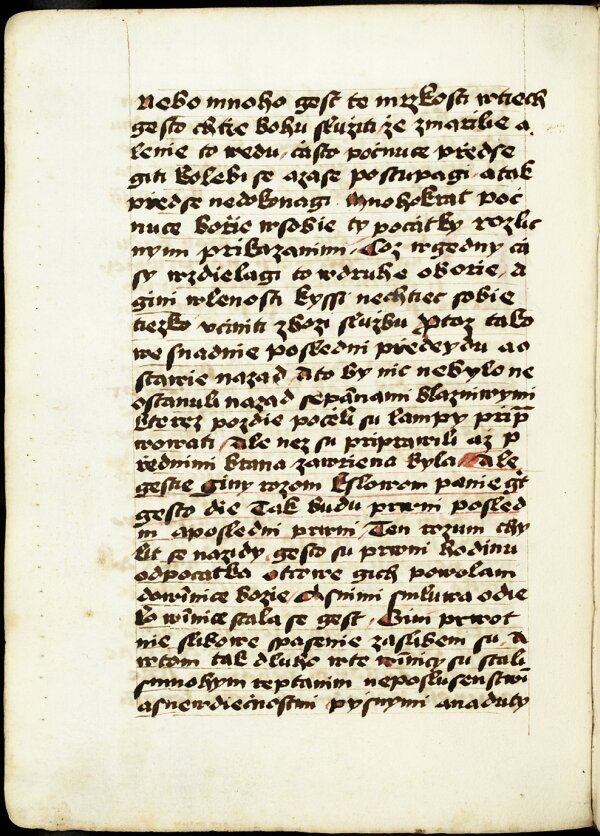 Nebo mnoho gest te mrzkosti wtiech
gesto chtie bohu służiti że zmarilie a
lenie to wedu, často počnuce předse
giti kolebi se azase postupagi atak
předse nedokonagi. mnohokrat poč
nuce bořie wsobie ty počatky rozlic
nymi přikazanimi. Coż wgedny ča
sy wzdielagi to wdruhe obořie, A
gini wlenosti kyssi nechtiec sobie
tiezko vciniti zbozi służbu Protoż tako
we snadnie posledni předeydu ao
stawie nazad Ato by nic nebylo ne
ostanuli nazad sepannami blazniwymi
kterez pozdie počeli su lampy prip
wowati Ale neż su priprawili aż p
řednimi brana zawřiena byla Ale
gestie giny rozom Kslowom panie gt
gesto die Tak budu prwni posled
ni aposledni prwni Ten rozum chy
lit se nażidy gesto su prwni hodinu
odpočatka otcowe gich powolani
dowinice bożie Asnimi smluwa odie
lo winice stala se gest, Gim prwot
nie slibowe spasenie zaslibeni su, A
wtom tak dluho wte winicy su stali
smnohym reptanim neposlusenstwi
asnewdiečnostmi pysnymi anaduty